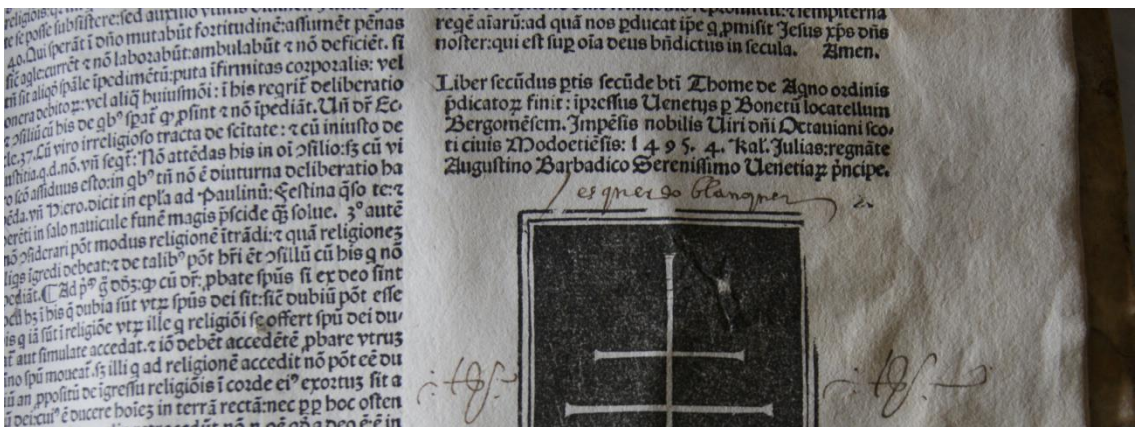 ne se posse subsistere: sed auxilio
40. Qui sperāt ī dño mutabūt fortitudinē: assumēt pēnas
sic agle: currēt ⁊ nō laborabūt: ambulabūt ⁊ nō deficiēt. si
tñ sit aliqđ spāle īpedimētū: puta īfirmitas corporalis: vel
onera debitoꝝ: vel aliq̄ huiusmōi: ī his regrit̄ deliberatio
⁊ ↄsiliū cū his de qbꝰ sperat̄ ꝙ ꝓsint ⁊ nō īpediāt. Uñ dr̄ Ec-
cle. 37. Cū viro irreligioso tracta de scītate: ⁊ cū iniusto de
iustitia. q. d. nō. vñ seqt̄: Nō attēdas his in oī ↄsilio: sꝫ cū vi
ro scō assiduus esto: in qbꝰ tñ nō ē diuturna deliberatio ha
bēda. vñ Hiero. dicit in epl̄a ad Paulinū: Festina q̄so te: ⁊
herēti in salo nauicule funē magis p̄scide q̄ꝫ solue. 3º autē
ↄsiderari pōt modus religionē ītrādi: ⁊ quā religioneꝫ
aliqs īgredi debeat: ⁊ de talibꝰ pōt hr̄i ēt ↄsiliū cū his q nō
īpediāt. ¶ Ad pᵐ g̊ dōꝫ: ꝙ cū dr̄: ꝓbate spūs si ex deo sint
locū hꝫ ī his q̄ dubia sūt vtꝝ spūs dei sit: sic̄ dubiū pōt esse
his q iā sūt ī religiōe vtꝝ ille q religiōi se offert spū dei du/
cat̄ aut simulate accedat. ⁊ iō debēt accedētē ꝓbare vtruꝫ
diuino spū moueat̄. sꝫ illi q ad religionē accedit nō pōt eē du
biū an ꝓpositū de īgressu religiōis ī corde eiꝰ exortuꝫ sit a
spū dei: cuiꝰ ē ducere hoīes in terrā rectā: nec ꝓp̄ hoc osten
regē aīarū: ad quā nos ꝑducat ip̄e q ꝓmisit Jesus xp̄s dñs
noster: qui est suꝑ oīa deus bñdictus in secula. Amen.
Liber secūdus ꝑtis secūde bt̄i Thome de Aqno ordinis
p̄dicatoꝝ finit: īpressus Uenetijs ꝑ Bonetū locatellum
Bergomēsem. Impēsis nobilis Uiri dñi Octauiani sco-
ti ciuis Modoetiēsis: 1495. 4. kal. Julias: regnāte
Augustino Barbadico Serenissimo Uenetiaꝝ p̄ncipe.